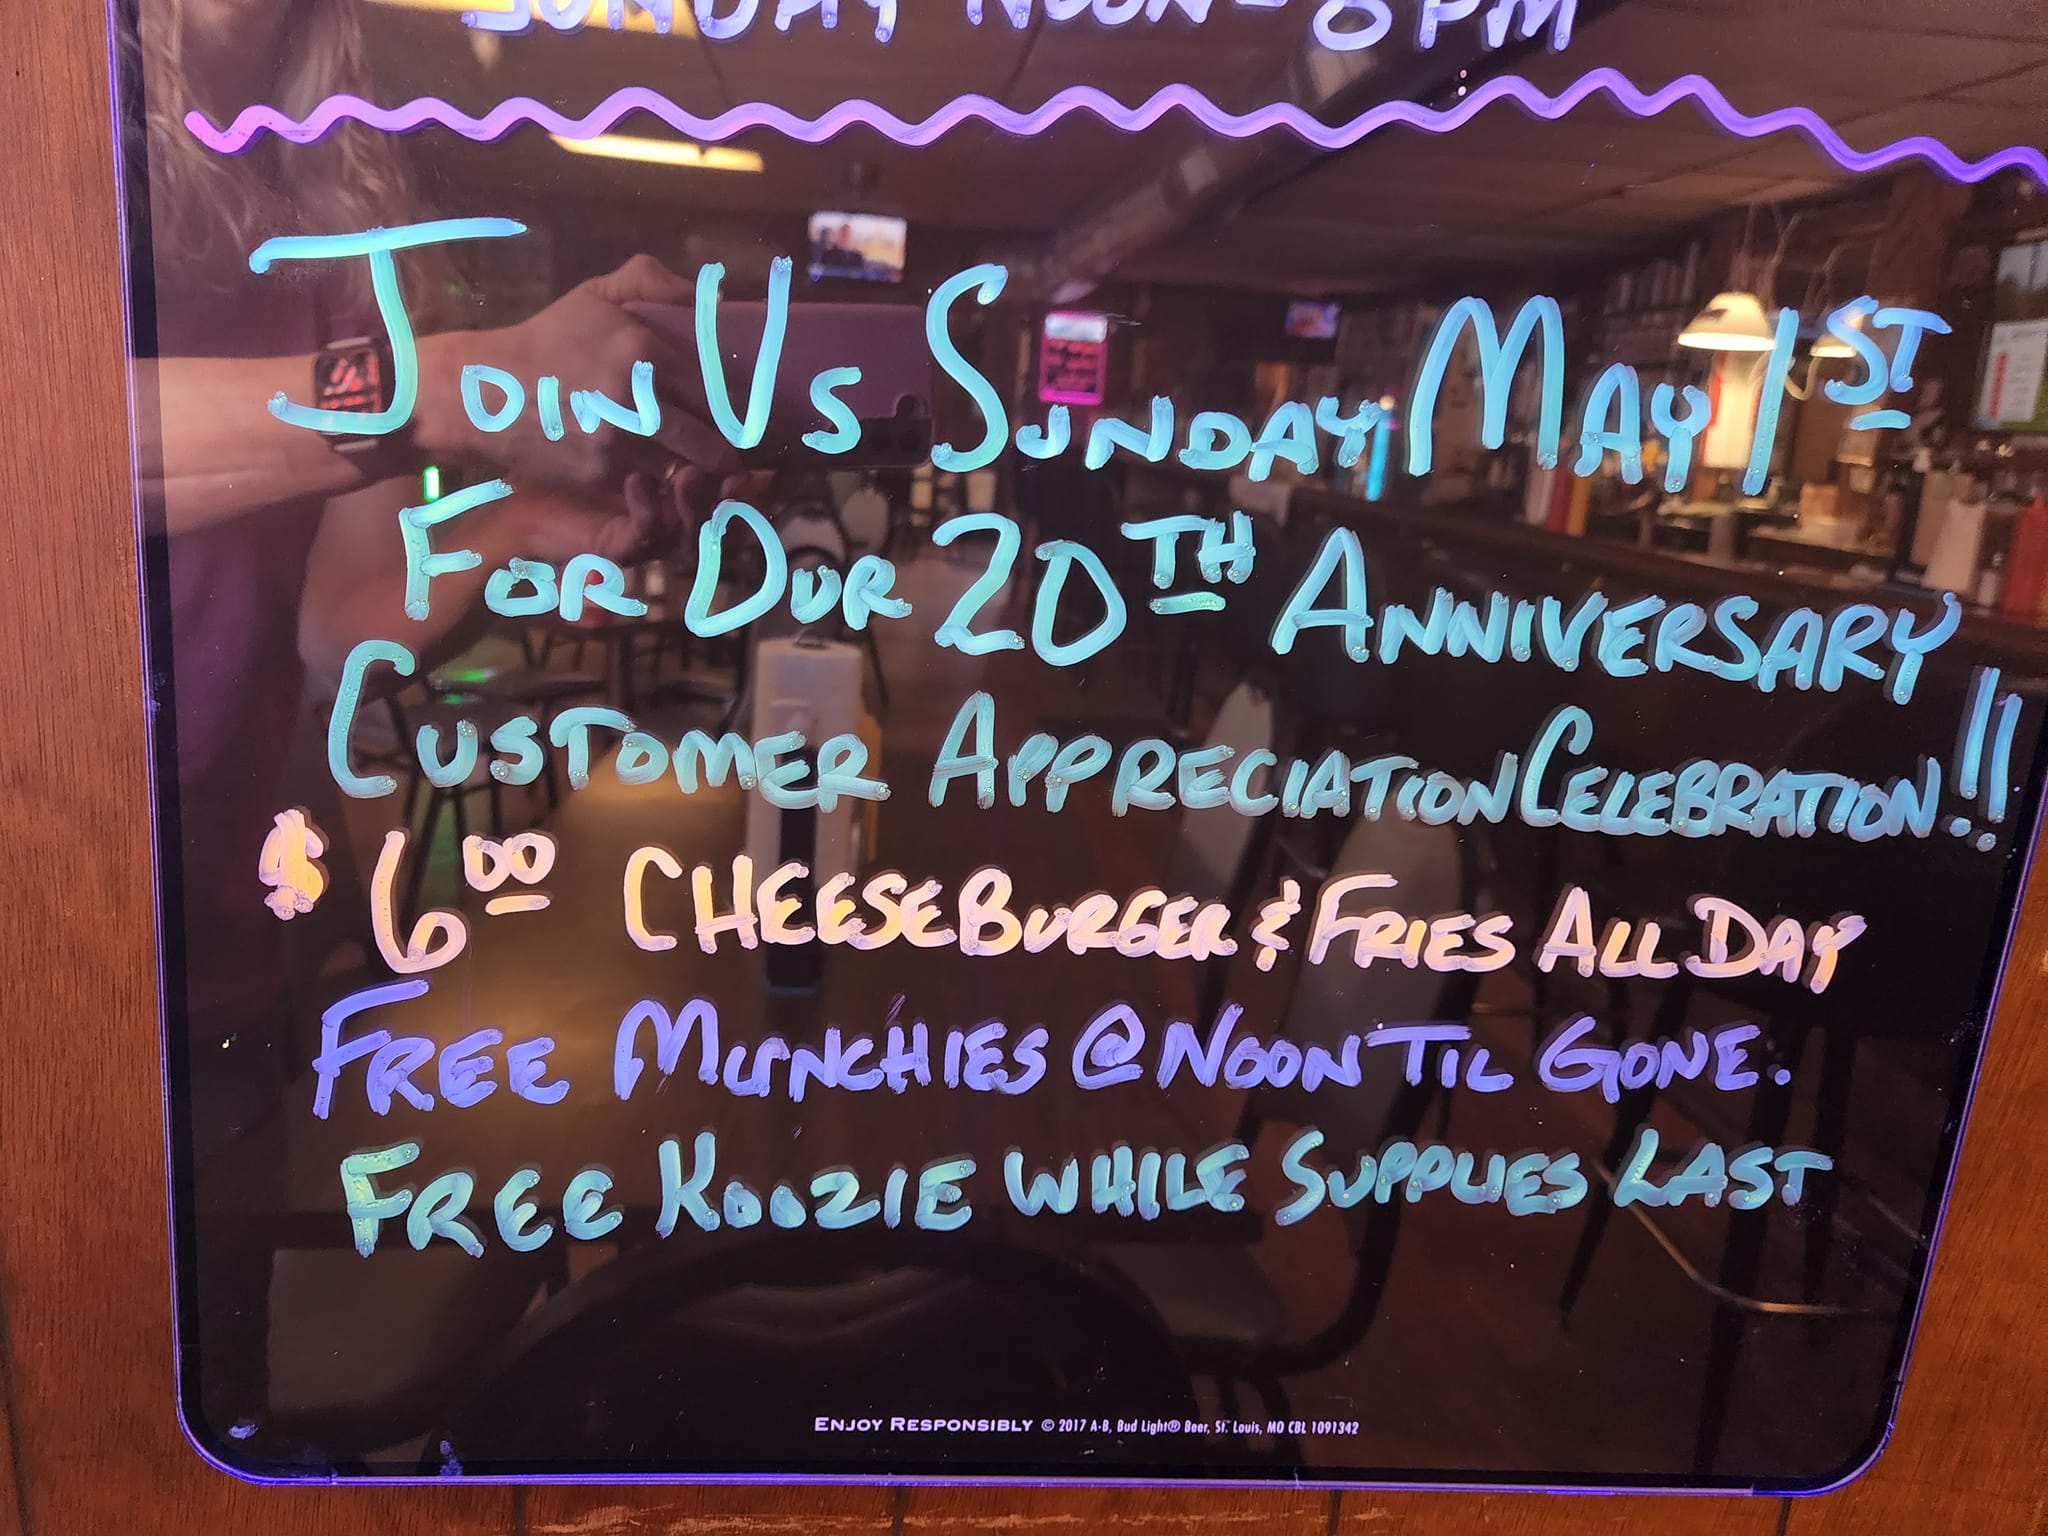 SUNDAY NOON-8PM
JOIN US SUNDAY MAY 1ST
FOR OUR 20TH ANNIVERSARY
CUSTOMER APPRECIATION CELEBRATION!!!
$6.00 CHEESEBURGER & FRIES ALL DAY
FREE MUNCHIES @ NOON TIL GONE.
FREE KOOZIE WHILE SUPPLIES LAST
ENJOY RESPONSIBLY © 2017 A-B, Bud Light® Beer, St. Louis, MO CBL 1091342